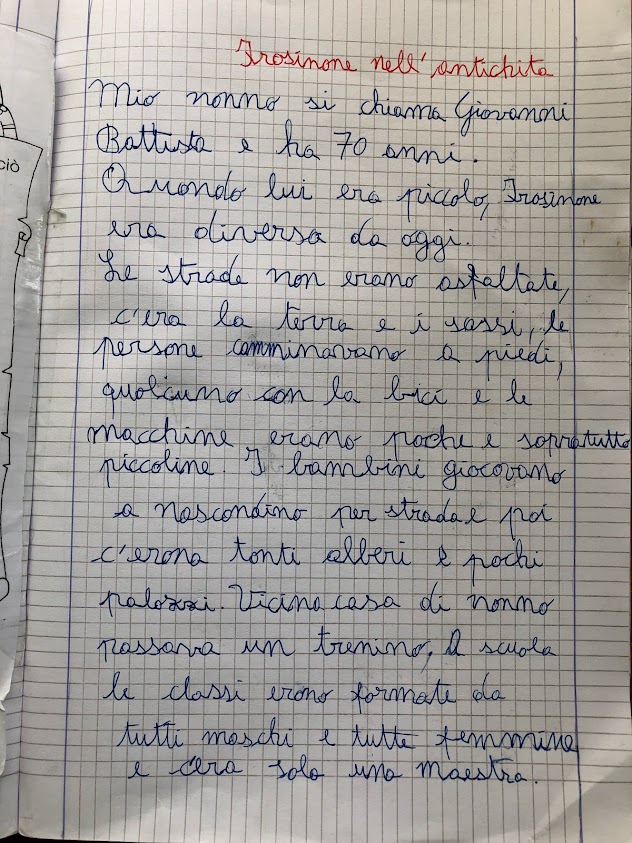 Frosinone nell'antichita
Mio nonno si chiama Giovanni
Battista e ha 70 anni.
Quando lui era piccolo, Frosinone
era diversa da oggi.
Le strade non erano asfaltate,
c'era la terra e i sassi, le
persone camminavano a piedi,
qualcuno con la bici e le
macchine erano poche e sopratutto
piccoline. I bambini giocavano
a nascondino per strada e poi
c'erona tanti alberi e pochi
palazzi. Vicina casa di nonno
passava un trenino. A scuola
le classi erano formate da
tutti maschi e tutte femmine
e c'era solo una maestra.
ciò